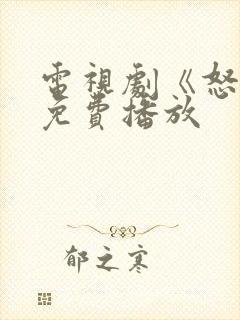 電視劇《怒
免費播放
郁之寒